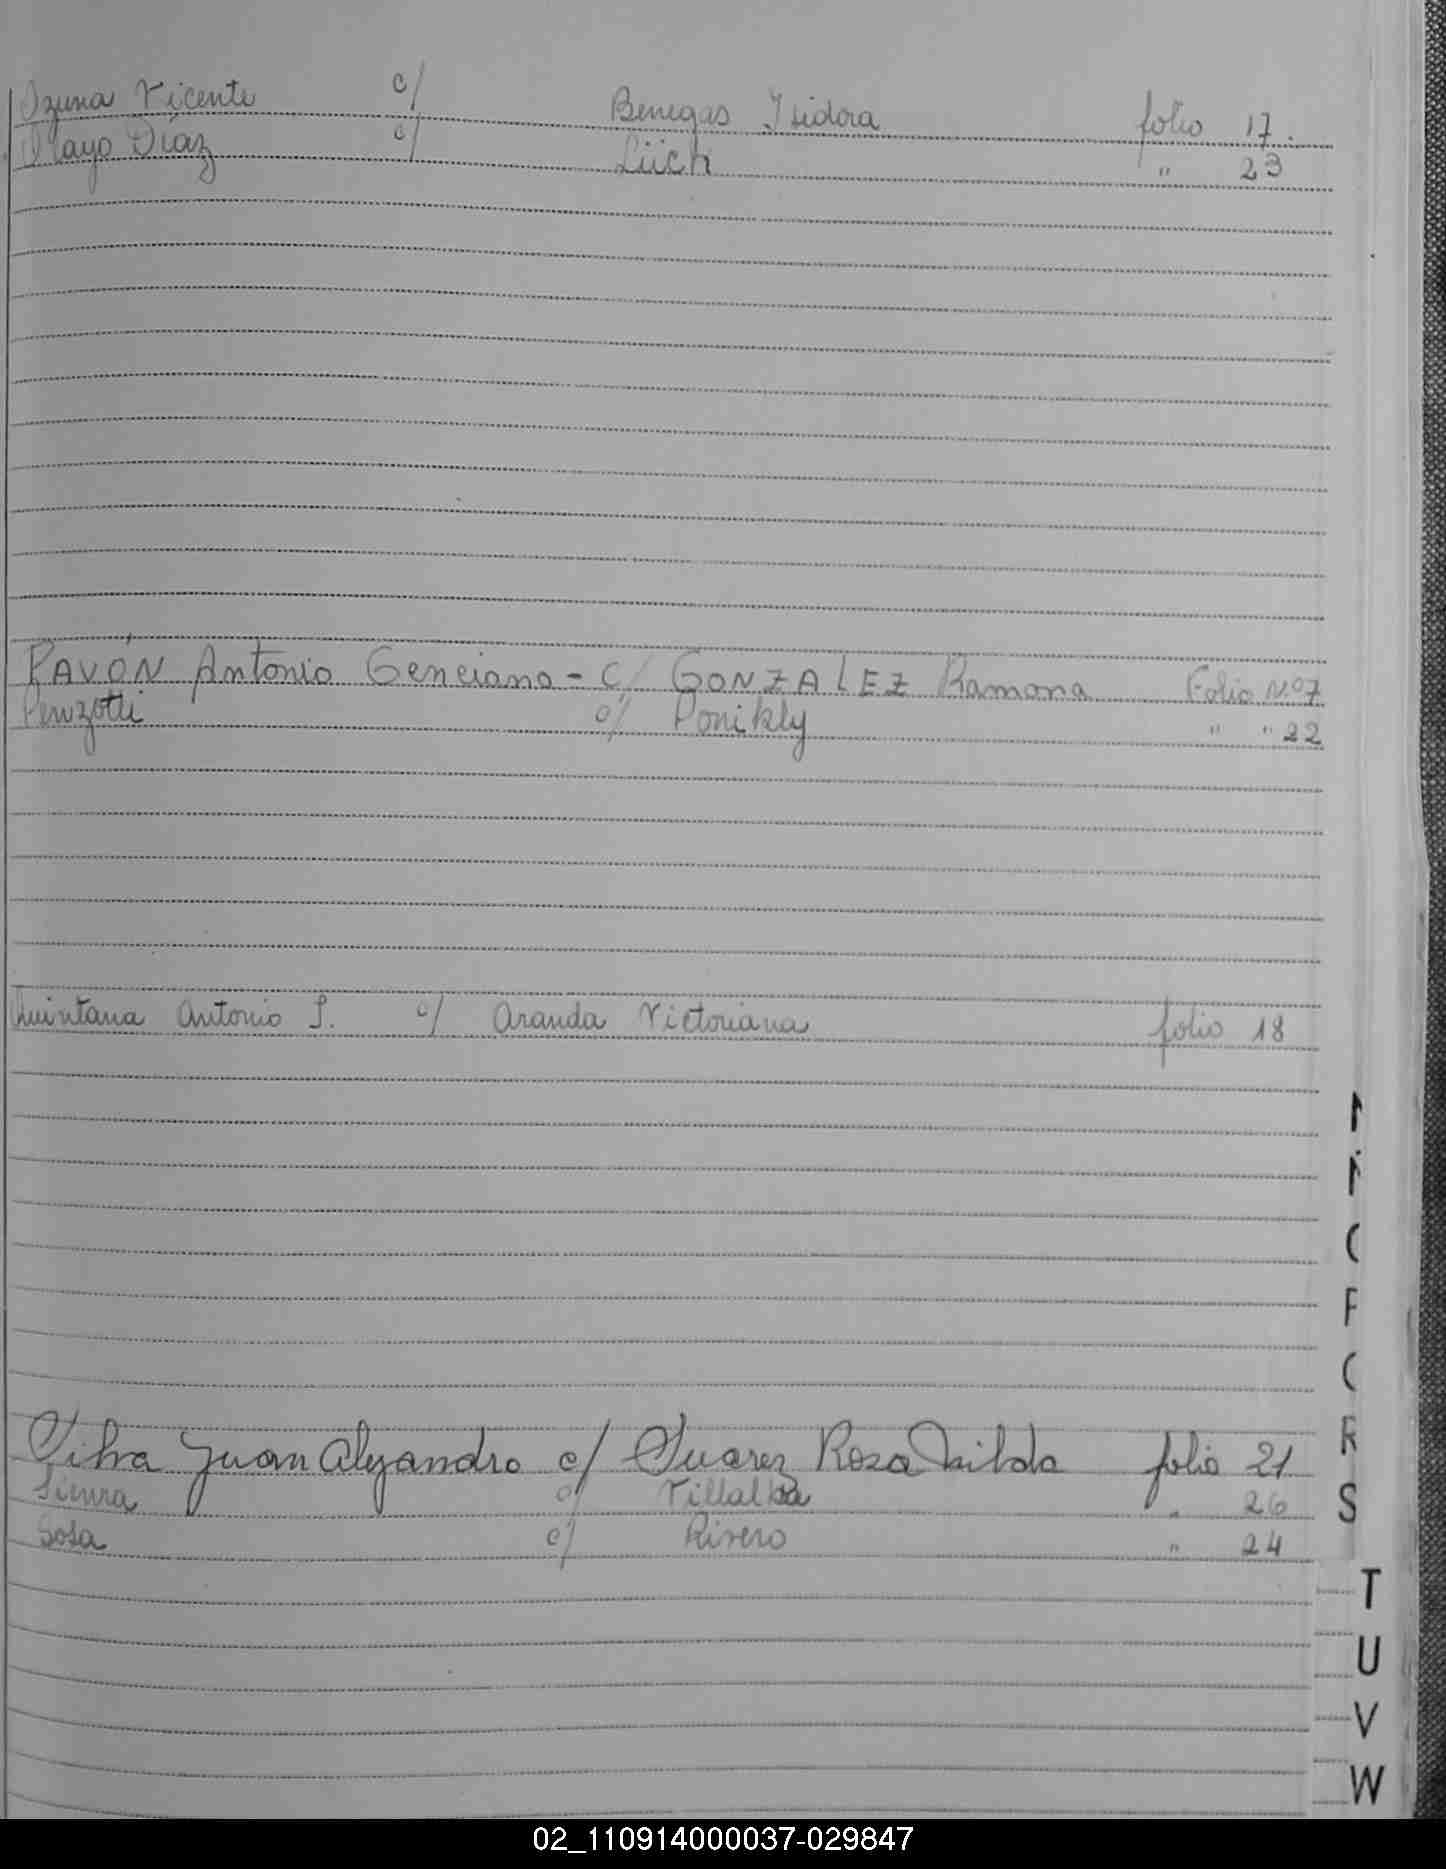 Ozuna Vicente c/ Benegas Isidora folio 17.
Olayo Díaz c/ Lüch " 23
PAVÓN Antonio Genciano - c/ GONZALEZ Ramona Folio Nº 7
Penzotti c/ Ponikly " " 22
Quintana Antonio S. c/ Aranda Victoriana folio 18
Silva Juan Alejandro c/ Suarez Rosa folio 21
Sienra c/ Villalba " 26
Sosa c/ Rivero " 24
R
S
T
U
V
W
02_110914000037-029847